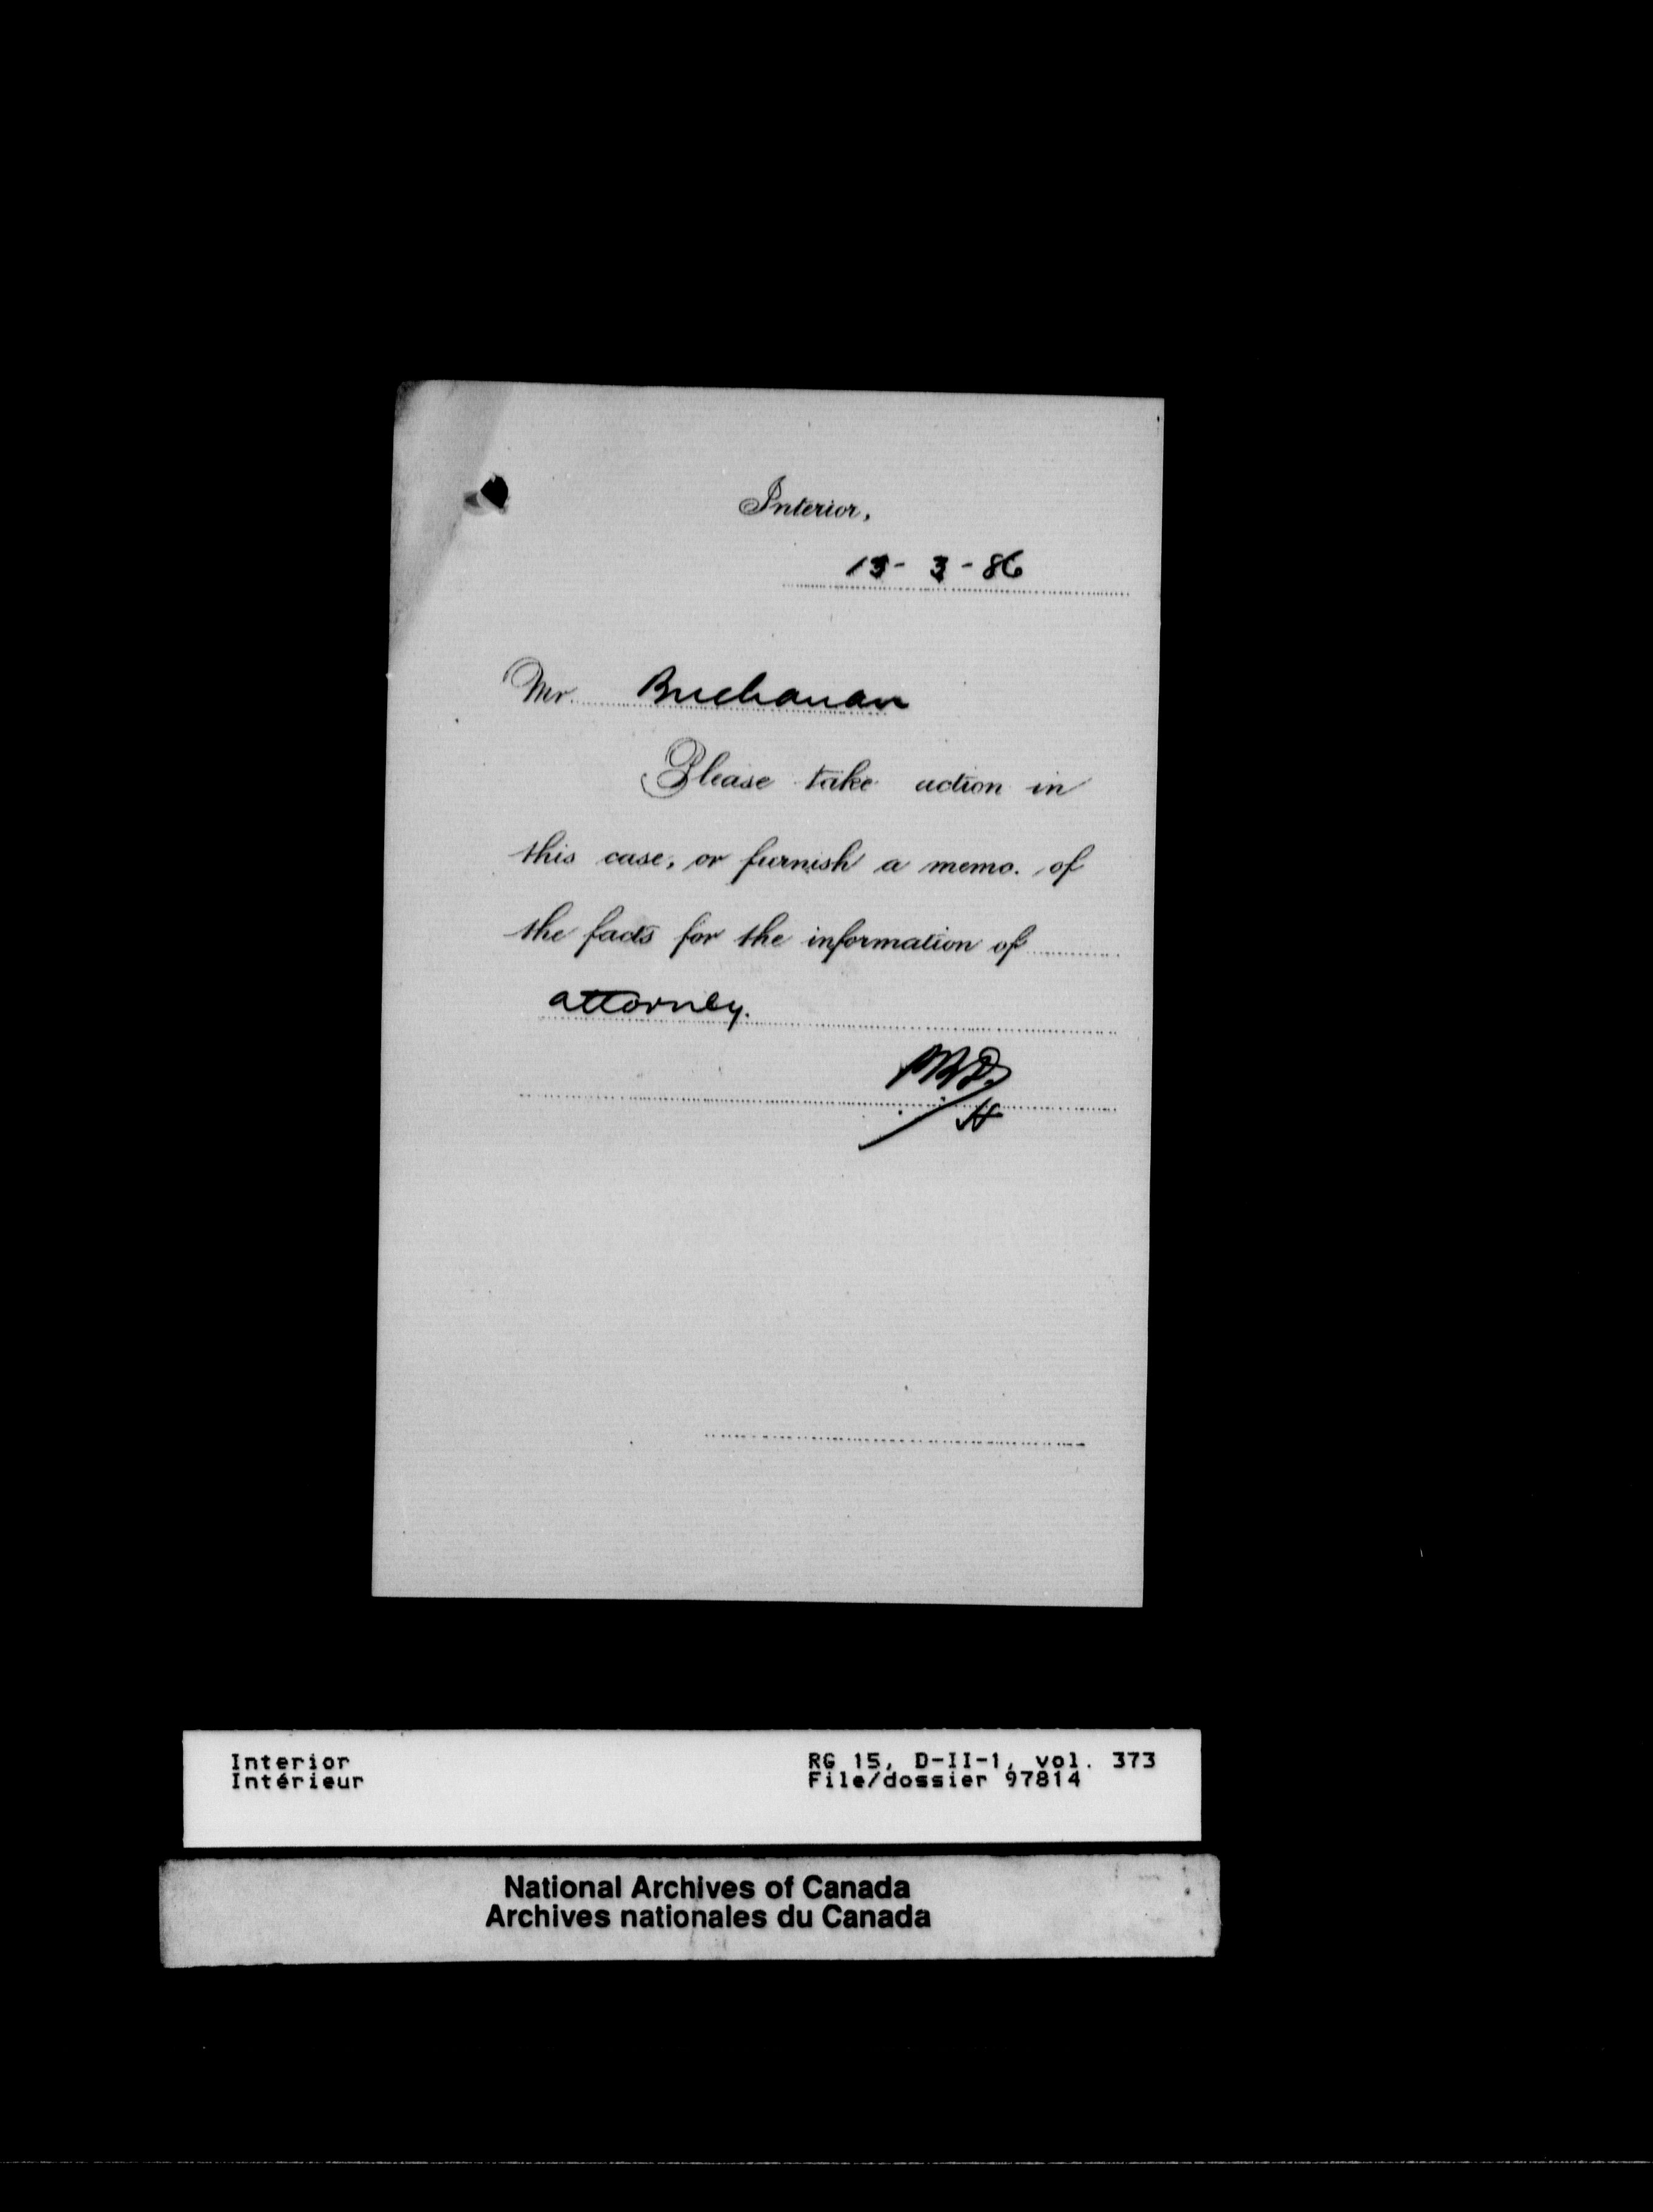 Interior,
13-3-86
Mr. Buchanan
Please take action in
this case, or furnish a memo. of
the facts for the information of
attorney.
Interior
Intérieur
RG 15, D-II-1, vol. 373
File/dossier 97814
National Archives of Canada
Archives nationales du Canada